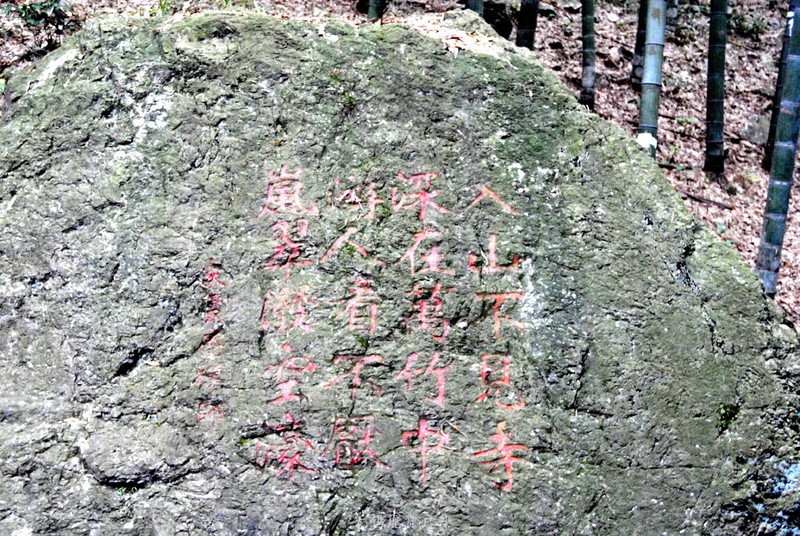 入山不見寺
深在萬竹中
游人看不厭
嵐翠潑空濛